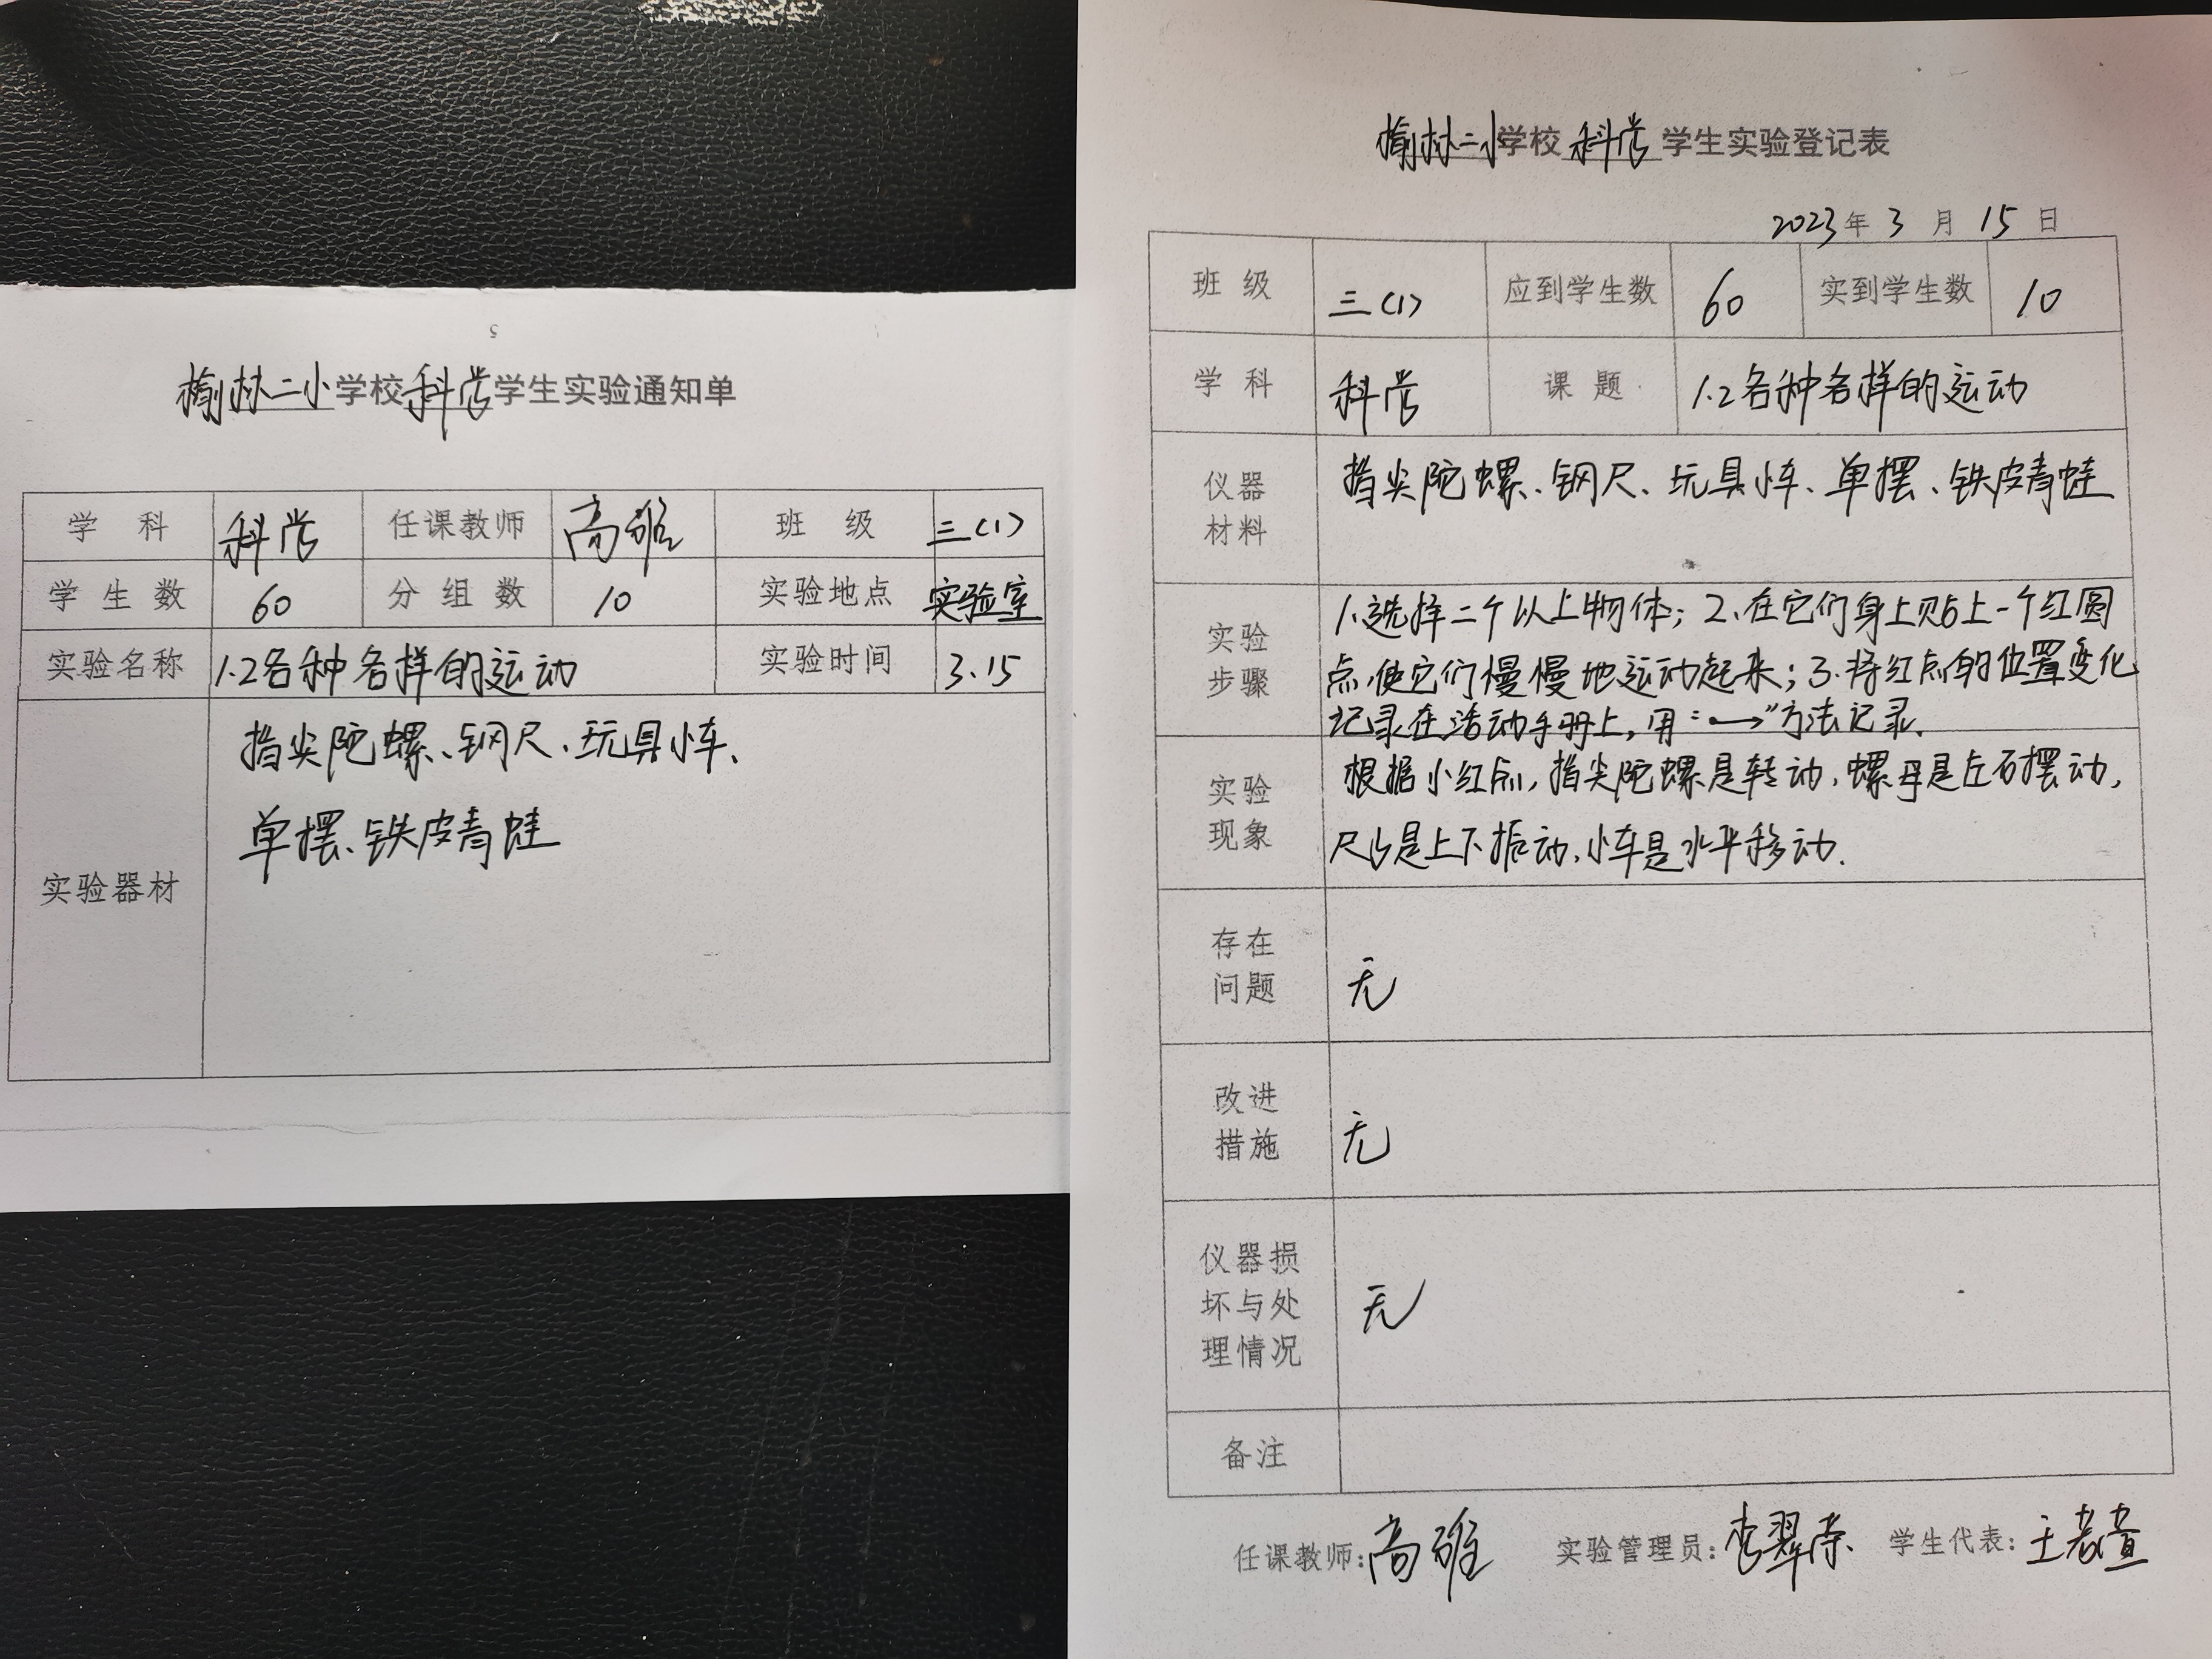 榆林二小学校科学学生实验通知单
学 科 科学 任课教师 高雅 班 级 三(1)
学 生 数 60 分 组 数 10 实验地点 实验室
实验名称 1.2各种各样的运动 实验时间 3.15
指尖陀螺、钢尺、玩具小车、
单摆、铁皮青蛙
实验器材
榆林二小学校 科学 学生实验登记表
2023年 3 月 15 日
班 级 三(1) 应到学生数 60 实到学生数 10
学 科 科学 课 题 1.2各种各样的运动
仪器
材料
指尖陀螺、钢尺、玩具小车、单摆、铁皮青蛙
实验
步骤
1.选择二个以上物体；2.在它们身上贴上一个红圆
点,使它们慢慢地运动起来；3.将红点的位置变化
记录在活动手册上,用“•→”方法记录.
实验
现象
根据小红点,指尖陀螺是转动,螺母是左右摆动,
尺子是上下振动,小车是水平移动.
存在
问题
无
改进
措施
无
仪器损
坏与处
理情况
无
备注
任课教师:高雅 实验管理员: 学生代表: